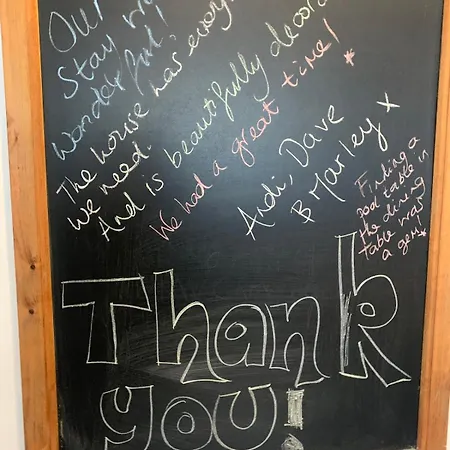 Our
Stay
wonderful.
The house has every
we need.
And is beautifully decora
We had a great time!
Andi, Dave
& Marley x
Finding a
pool table in
the dining
table was
a gem*
Thank
you!